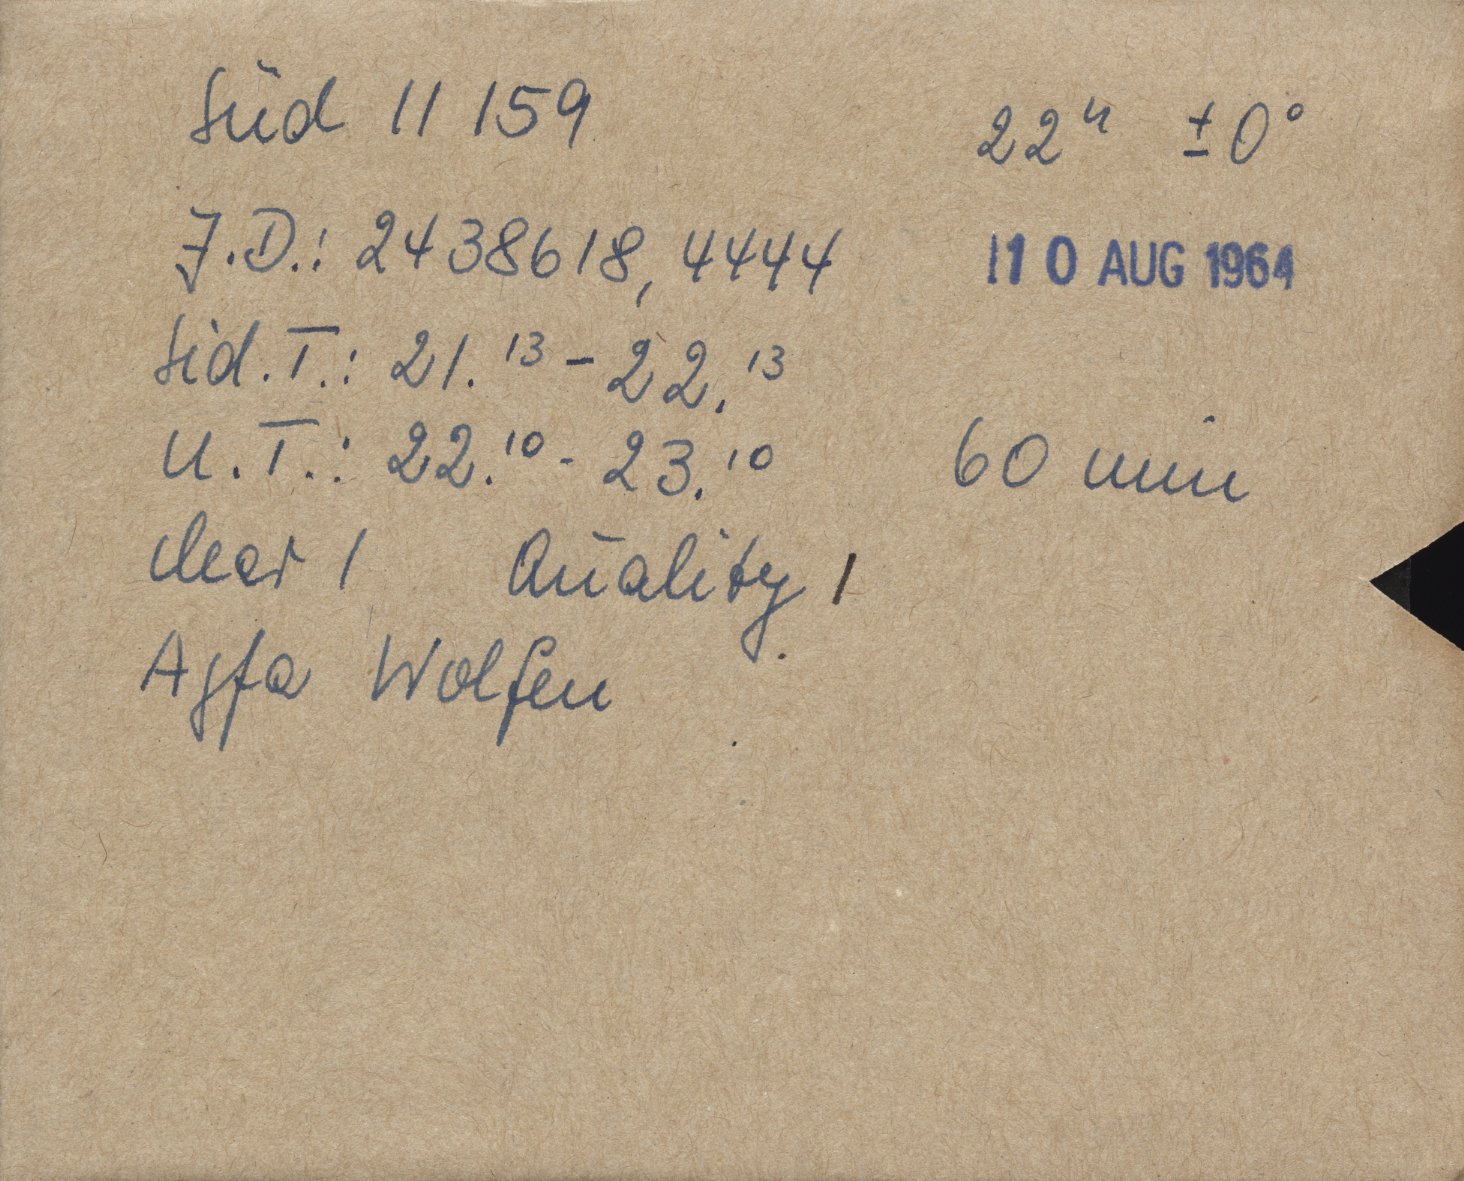 Süd 11 159 22ʰ ±0°
J.D.: 2438618,4444 10 AUG 1964
Sid.T.: 21.¹³ – 22.¹³
U.T.: 22.¹⁰ - 23.¹⁰ 60 min
clear 1 Quality 1
Agfa Wolfen